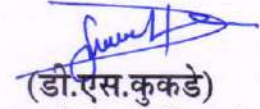 (डी.एस.कुकडे)